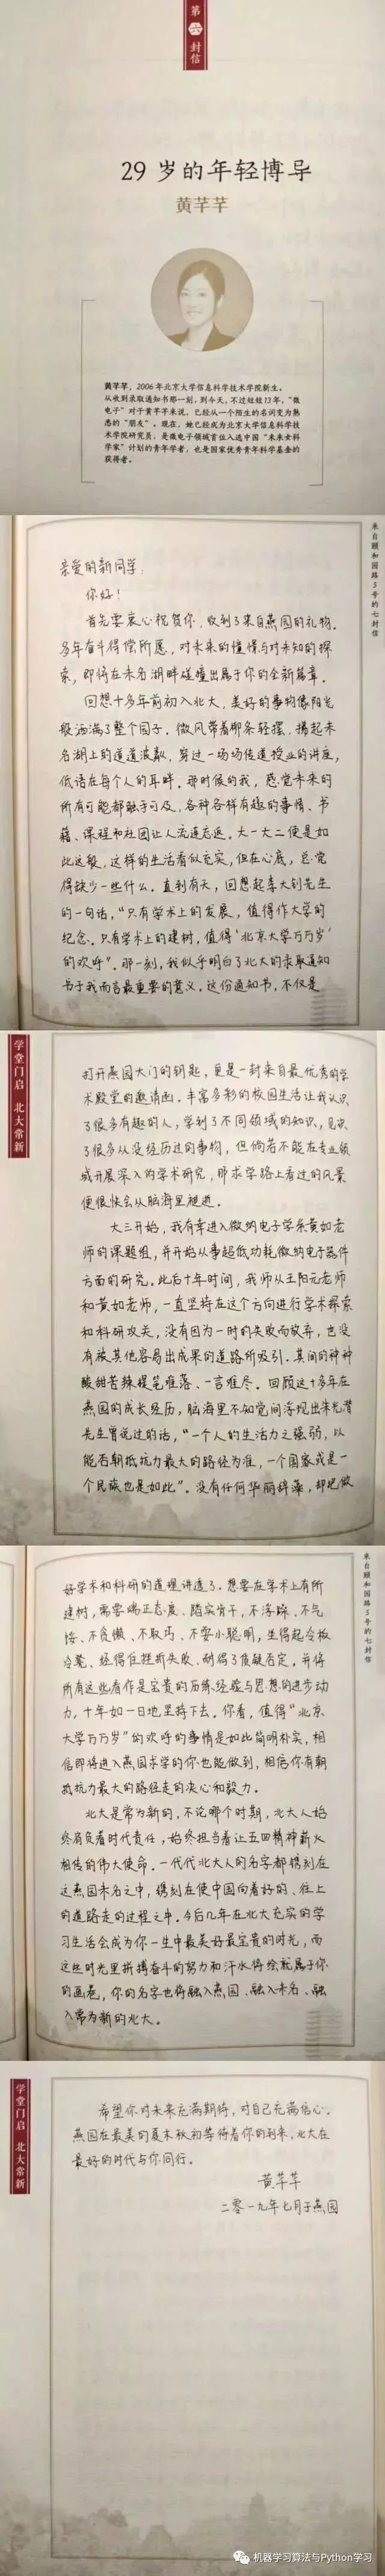 第六封信
29 岁的年轻博导
黄芊芊
黄芊芊，2006 年北京大学信息科学技术学院新生。
从收到录取通知书那一刻，到今天，不过短短13年，“微
电子”对于黄芊芊来说，已经从一个陌生的名词变为熟
悉的“朋友”。现在，她已经成为北京大学信息科学技
术学院研究员，是微电子领域首位入选中国“未来女科
学家”计划的青年学者，也是国家优秀青年科学基金的
获得者。
来自颐和园路5号的七封信
亲爱的新同学：
你好！
首先要衷心祝贺你，收到了来自燕园的礼物。
多年奋斗得偿所愿，对未来的憧憬与对未知的探
索，即将在未名湖畔碰撞出属于你的全新篇章。
回想十多年前初入北大，美好的事物像阳光
般洒满了整个园子。微风带着柳条轻摆，扬起未
名湖上的道道波澜，穿过一场场传道授业的讲座，
低语在每个人的耳畔。那时候的我，感觉未来的
所有可能都触手可及，各种各样有趣的事情、书
籍、课程和社团让人流连忘返。大一大二便是如
此这般，这样的生活看似充实，但在心底，总觉
得缺少一些什么。直到有天，回想起李大钊先生
的一句话，“只有学术上的发展，值得作大学的
纪念。只有学术上的建树，值得‘北京大学万万岁’
的欢呼”。那一刻，我似乎明白了北大的录取通知
书于我而言最重要的意义。这份通知书，不仅是
学堂门启 北大常新
打开燕园大门的钥匙，更是一封来自最优秀的学
术殿堂的邀请函。丰富多彩的校园生活让我认识
了很多有趣的人，学到了不同领域的知识，见识
了很多从没经历过的事物，但倘若不能在专业领
域开展深入的学术研究，那求学路上看过的风景
便很快会从脑海里褪逝。
大三开始，我有幸进入微纳电子学系黄如老
师的课题组，并开始从事超低功耗微纳电子器件
方面的研究。此后十年时间，我师从王阳元老师
和黄如老师，一直坚持在这个方向进行学术探索
和科研攻关，没有因为一时的失败而放弃，也没
有被其他容易出成果的道路所吸引。其间的种种
酸甜苦辣提笔难落、一言难尽。回顾这十多年在
燕园的成长经历，脑海里不知觉间浮现出朱光潜
先生曾说过的话，“一个人的生活力之强弱，以
能否朝抵抗力最大的路径为准，一个国家或是一
个民族也是如此”。没有任何华丽辞藻，却把做
来自颐和园路5号的七封信
好学术和科研的道理讲透了。想要在学术上有所
建树，需要端正态度、踏实肯干，不浮躁、不气
馁、不贪懒、不取巧、不耍小聪明，坐得起冷板
冷凳、经得住挫折失败、耐得了质疑否定，并将
所有这些看作是宝贵的历练、经验与思想的进步动
力，十年如一日地坚持下去。你看，值得“北京
大学万万岁”的欢呼的事情是如此简明朴实，相
信即将进入燕园求学的你也能做到，相信你有朝
抵抗力最大的路径走的决心和毅力。
北大是常为新的，不论哪个时期，北大人始
终肩负着时代责任，始终担当着让五四精神薪火
相传的伟大使命。一代代北大人的名字都镌刻在
这燕园未名之中，镌刻在使中国向着好的、往上
的道路走的过程之中。今后几年在北大充实的学
习生活会成为你一生中最美好最宝贵的时光，而
这些时光里拼搏奋斗的努力和汗水将绘就属于你
的画卷，你的名字也将融入燕园、融入未名、融
入常为新的北大。
学堂门启 北大常新
希望你对未来充满期待，对自己充满信心。
燕园在最美的夏末秋初等待着你的到来，北大在
最好的时代与你同行。
黄芊芊
二零一九年七月于燕园
机器学习算法与Python学习